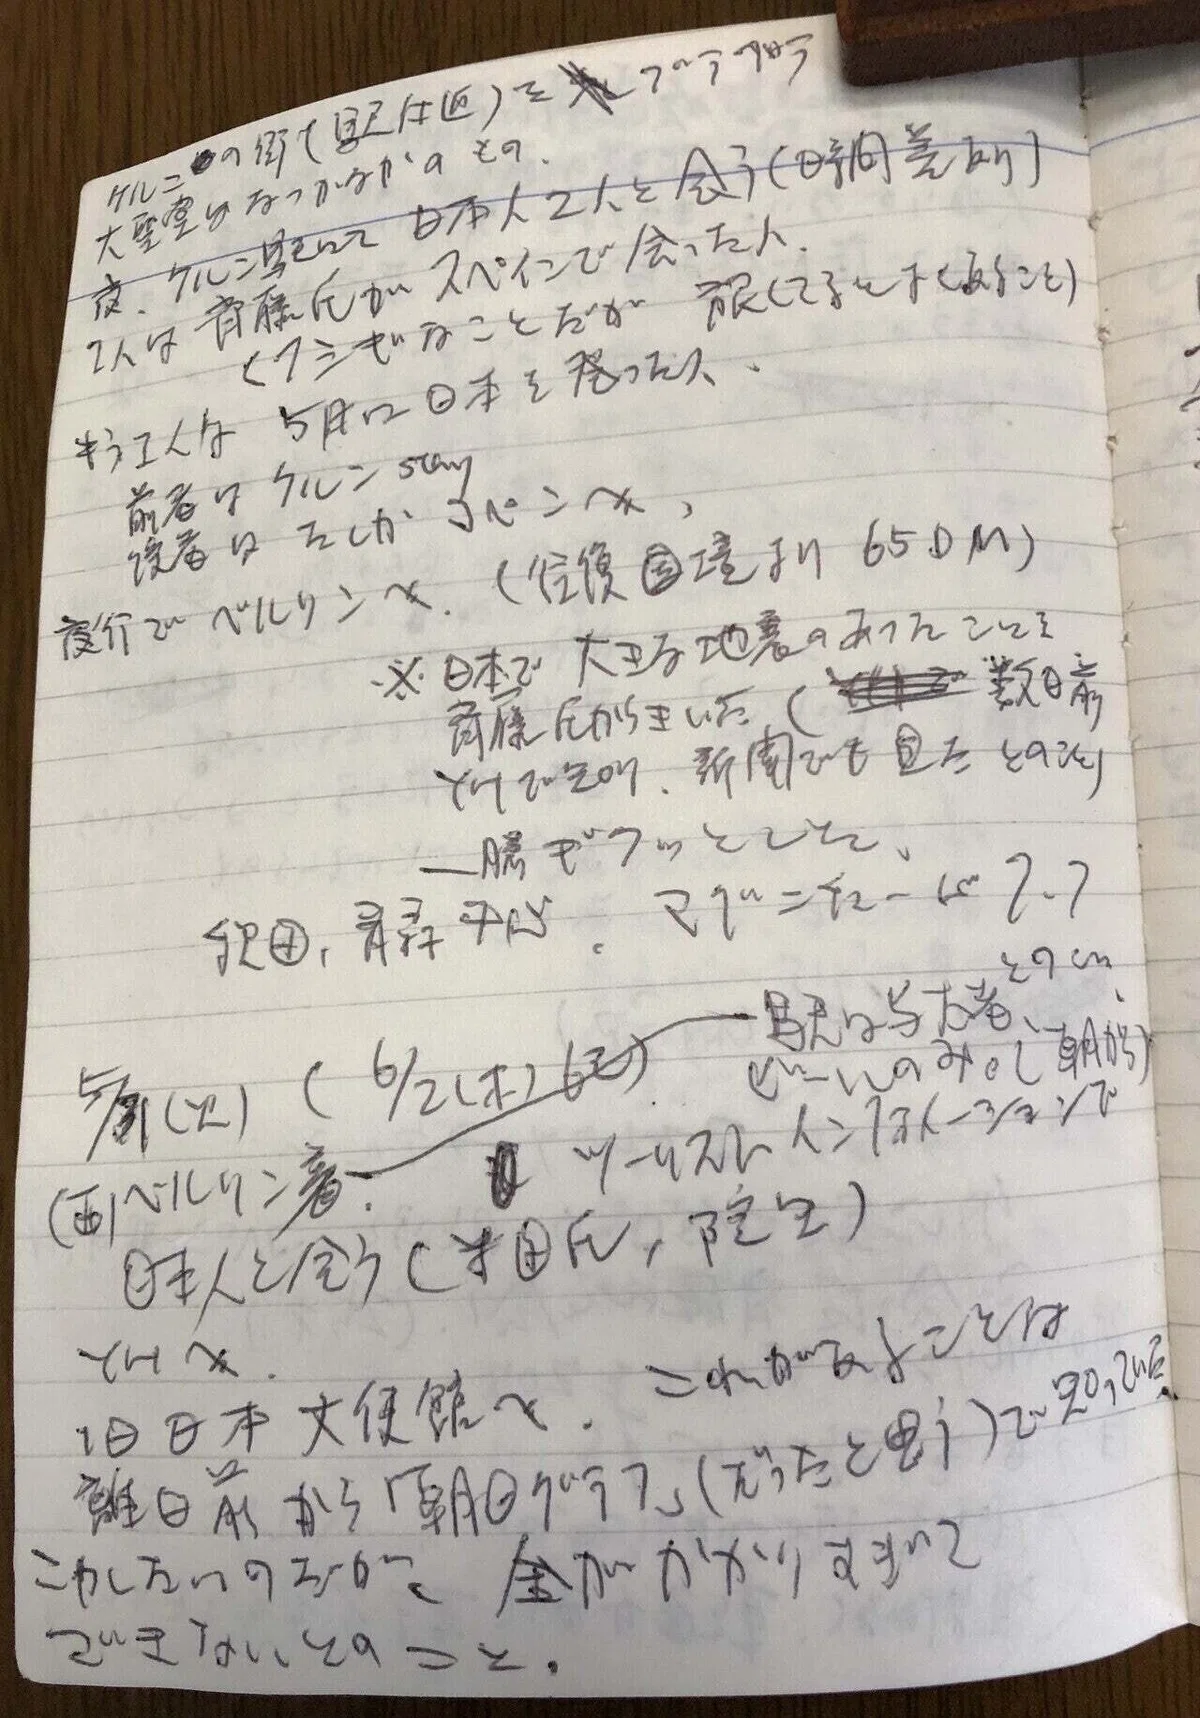 ケルンの街(駅付近)を ブラブラ
大聖堂はなかなかのもの.
夜、ケルン駅にて 日本人2人と会う(時間差あり)
1人は 斉藤氏が スペインで会った人.
(フシギなことだが 旅してるとよくあること)
もう1人は 5月に日本を発った人.
前者は ケルン stay
後者は たしか コペンへ、
夜行で ベルリンへ. (往復 国境より 65DM)
※ 日本で 大きな地震のあったことを
斉藤氏からきいた ( 数日前
YHで知り、新聞でも見たとのこと)
一瞬ギクッとした、
秋田、青森中心. マグニチュード 7.7
とのこと、
(6/2(木)6:30) 駅は与太者、
ビールのみ 朝から)
(西)ベルリン着. ツーリストインフォメーションで
日本人と会う(米田氏, 院生)
YHへ.
旧日本大使館へ. これがあることは
離日前から「朝日グラフ」(だったと思う)で知っていた.
こわしたいのだが、金がかかりすぎて
できないとのこと.